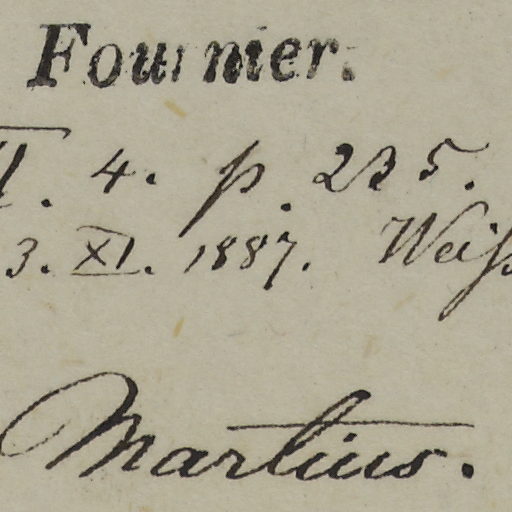 Fournier.
II. 4. p. 225.
3. XI. 1887. Weiss
Martius.